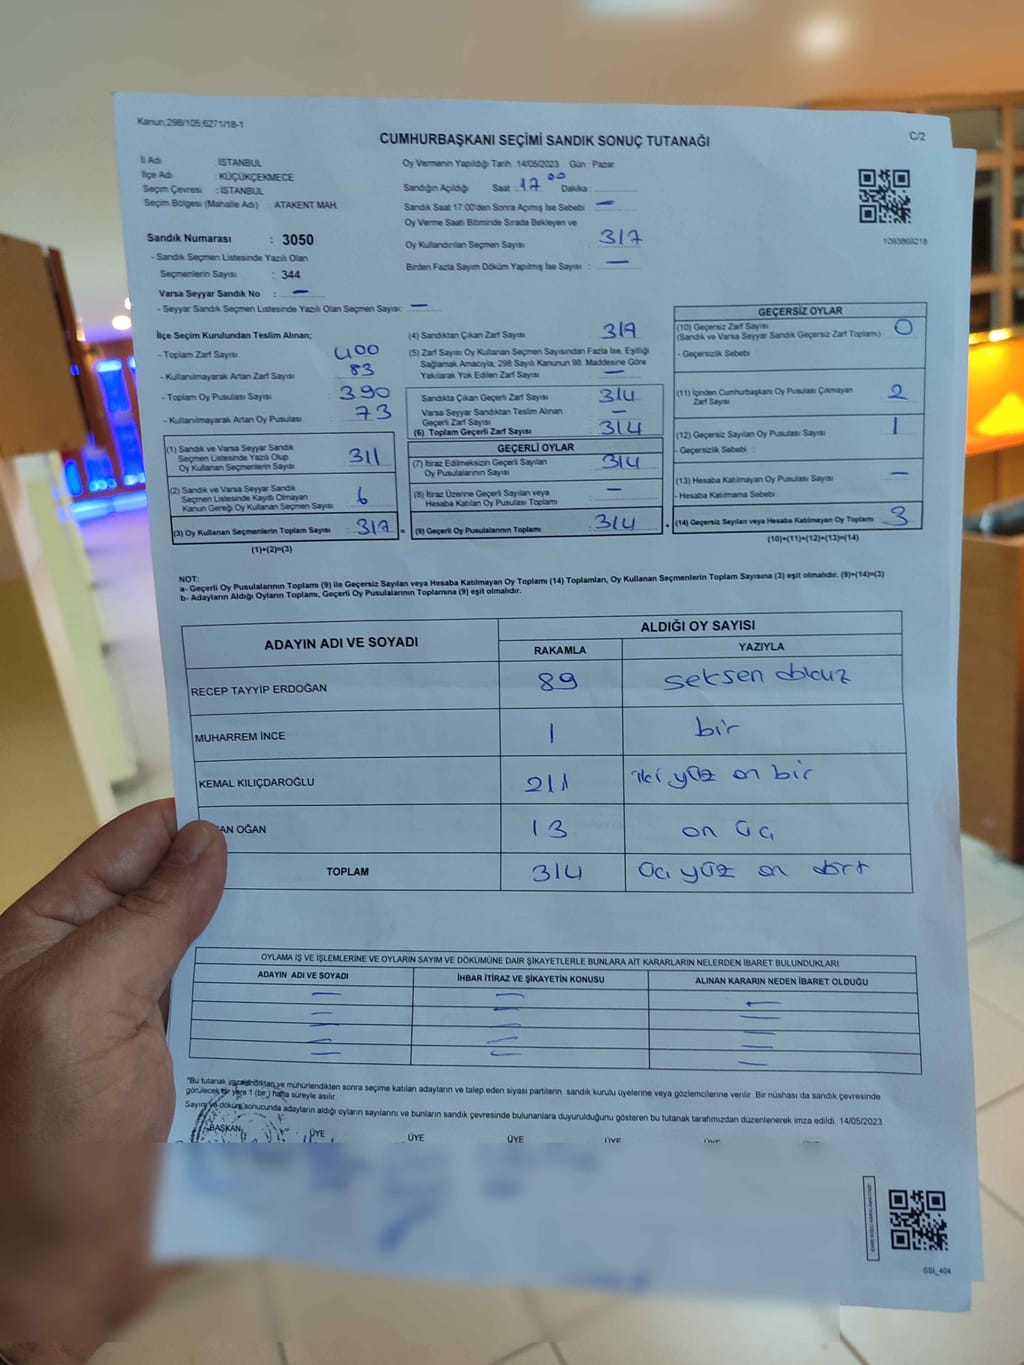 Kanun;298/105;6271/18-1
CUMHURBAŞKANI SEÇİMİ SANDIK SONUÇ TUTANAĞI
C/2
İl Adı : İSTANBUL
İlçe Adı : KÜÇÜKÇEKMECE
Seçim Çevresi : İSTANBUL
Seçim Bölgesi (Mahalle Adı) : ATAKENT MAH.
Sandık Numarası : 3050
- Sandık Seçmen Listesinde Yazılı Olan
Seçmenlerin Sayısı : 344
Varsa Seyyar Sandık No : —
- Seyyar Sandık Seçmen Listesinde Yazılı Olan Seçmen Sayısı: —
Oy Vermenin Yapıldığı Tarih :14/05/2023 Gün : Pazar
Sandığın Açıldığı Saat : 17 00 Dakika :
Sandık Saat 17:00'den Sonra Açımış İse Sebebi : —
Oy Verme Saati Bitiminde Sırada Bekleyen ve
Oy Kullandırılan Seçmen Sayısı : 317
Birden Fazla Sayım Döküm Yapılmış İse Sayısı : —
1093869218
İlçe Seçim Kurulundan Teslim Alınan;
- Toplam Zarf Sayısı : 400
- Kullanılmayarak Artan Zarf Sayısı : 83
- Toplam Oy Pusulası Sayısı : 390
- Kullanılmayarak Artan Oy Pusulası : 73
(1) Sandık ve Varsa Seyyar Sandık
Seçmen Listesinde Yazılı Olup
Oy Kullanan Seçmenlerin Sayısı : 311
(2) Sandık ve Varsa Seyyar Sandık
Seçmen Listesinde Kayıtlı Olmayan
Kanun Gereği Oy Kullanan Seçmen Sayısı : 6
(3) Oy Kullanan Seçmenlerin Toplam Sayısı : 317 =
(1)+(2)=(3)
(4) Sandıktan Çıkan Zarf Sayısı : 317
(5) Zarf Sayısı Oy Kullanan Seçmen Sayısından Fazla İse, Eşitliği
Sağlamak Amacıyla, 298 Sayılı Kanunun 98. Maddesine Göre
Yakılarak Yok Edilen Zarf Sayısı : —
Sandıkta Çıkan Geçerli Zarf Sayısı : 314
Varsa Seyyar Sandıktan Teslim Alınan
Geçerli Zarf Sayısı : —
(6) Toplam Geçerli Zarf Sayısı : 314
GEÇERLİ OYLAR
(7) İtiraz Edilmeksizin Geçerli Sayılan
Oy Pusulalarının Sayısı : 314
(8) İtiraz Üzerine Geçerli Sayılan veya
Hesaba Katılan Oy Pusulası Toplamı : —
(9) Geçerli Oy Pusulalarının Toplamı : 314 +
GEÇERSİZ OYLAR
(10) Geçersiz Zarf Sayısı
(Sandık ve Varsa Seyyar Sandık Geçersiz Zarf Toplamı) : 0
- Geçersizlik Sebebi
(11) İçinden Cumhurbaşkanı Oy Pusulası Çıkmayan
Zarf Sayısı : 2
(12) Geçersiz Sayılan Oy Pusulası Sayısı : 1
- Geçersizlik Sebebi :
(13) Hesaba Katılmayan Oy Pusulası Sayısı : —
- Hesaba Katılmama Sebebi :
(14) Geçersiz Sayılan veya Hesaba Katılmayan Oy Toplamı : 3
(10)+(11)+(12)+(13)=(14)
NOT:
a- Geçerli Oy Pusulalarının Toplamı (9) ile Geçersiz Sayılan veya Hesaba Katılmayan Oy Toplamı (14) Toplamları, Oy Kullanan Seçmenlerin Toplam Sayısına (3) eşit olmalıdır. (9)+(14)=(3)
b- Adayların Aldığı Oyların Toplamı, Geçerli Oy Pusulalarının Toplamına (9) eşit olmalıdır.
ADAYIN ADI VE SOYADI
ALDIĞI OY SAYISI
RAKAMLA YAZIYLA
RECEP TAYYİP ERDOĞAN 89 seksen dokuz
MUHARREM İNCE 1 bir
KEMAL KILIÇDAROĞLU 211 iki yüz on bir
AN OĞAN 13 on üç
TOPLAM 314 Üç yüz on dört
OYLAMA İŞ VE İŞLEMLERİNE VE OYLARIN SAYIM VE DÖKÜMÜNE DAİR ŞİKAYETLERLE BUNLARA AİT KARARLARIN NELERDEN İBARET BULUNDUKLARI
ADAYIN ADI VE SOYADI İHBAR İTİRAZ VE ŞİKAYETİN KONUSU ALINAN KARARIN NEDEN İBARET OLDUĞU
*Bu tutanak yazıldıktan ve mühürlendikten sonra seçime katılan adayların ve talep eden siyasi partilerin sandık kurulu üyelerine veya gözlemcilerine verilir. Bir nüshası da sandık çevresinde
görülecek bir yere 1 (bir) hafta süreyle asılır.
Sayım ve döküm sonucunda adayların aldığı oyların sayılarını ve bunların sandık çevresinde bulunanlara duyurulduğunu gösteren bu tutanak tarafımızdan düzenlenerek imza edildi. 14/05/2023
BAŞKAN ÜYE ÜYE ÜYE ÜYE ÜYE
GSI_404